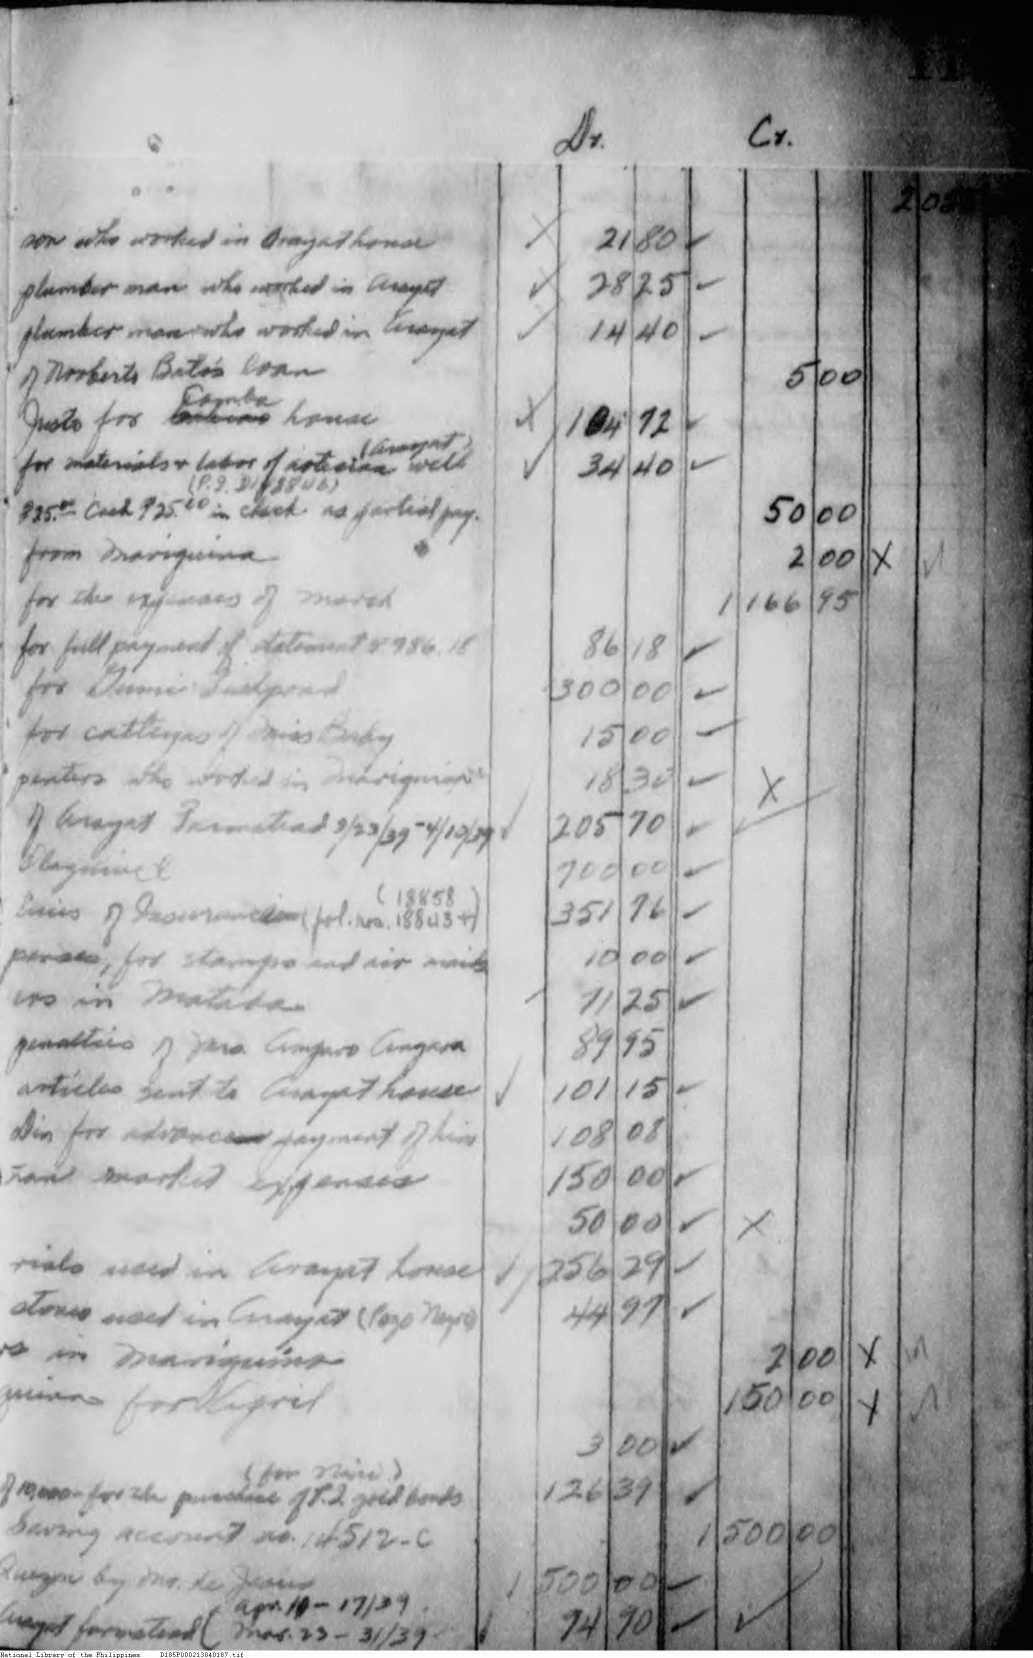 11
Dr. Cr.
202
son who worked in Arayat house X 21 80 ✓
plumber man who worked in Arayat ✓ 28 25 ✓
plumber man who worked in Arayat ✓ 14 40 ✓
of Norberto Bato's loan 5 00
Comba
Justo for house X 104 72 ✓
(Arayat)
for materials & labor of artesian well ✓ 34 40 ✓
₱25.00 Cash ₱25.00 in check as partial pay. 50 00
from Mariquina 2 00 X ✓
for the expenses of March 1 166 95
for full payment of statement 86 18 ✓
for 300 00 ✓
for of Miss Baby 15 00 ✓
penters who worked in Mariquina 18 30 ✓ X
of Arayat Farmstead 3/23/39-4/10/39 ✓ 205 70 ✓ ✓
700 00 ✓
( 18858
of Insurance (pol. nos. 18843 +) 351 76 ✓
penses, for stamps and air mails 10 00 ✓
ers in Matalba 71 25 ✓
penalties of Mrs. Amparo Angara 89 95
articles sent to Arayat house ✓ 101 15 ✓
Din for advance payment of his 108 08
market expenses 150 00 ✓
50 00 ✓ X
rials used in Arayat house ✓ 256 29 ✓
stones used in Arayat (Pozo Negro) 44 97 ✓
rs in Mariquina 2 00 X ✓
quina for April 150 00 X ✓
3 00 ✓
(for Nini)
of 10,000 for the purchase of P.I. gold bonds 126 39 ✓
Saving account no. 14512-C 1 500 00
Quezon by Mr. de Jesus 1 500 00 ✓
Apr. 10 - 17/39
Arayat farmstead ( Mar. 23 - 31/39 94 90 ✓ ✓
National Library of the Philippines D185P000213040187.tif